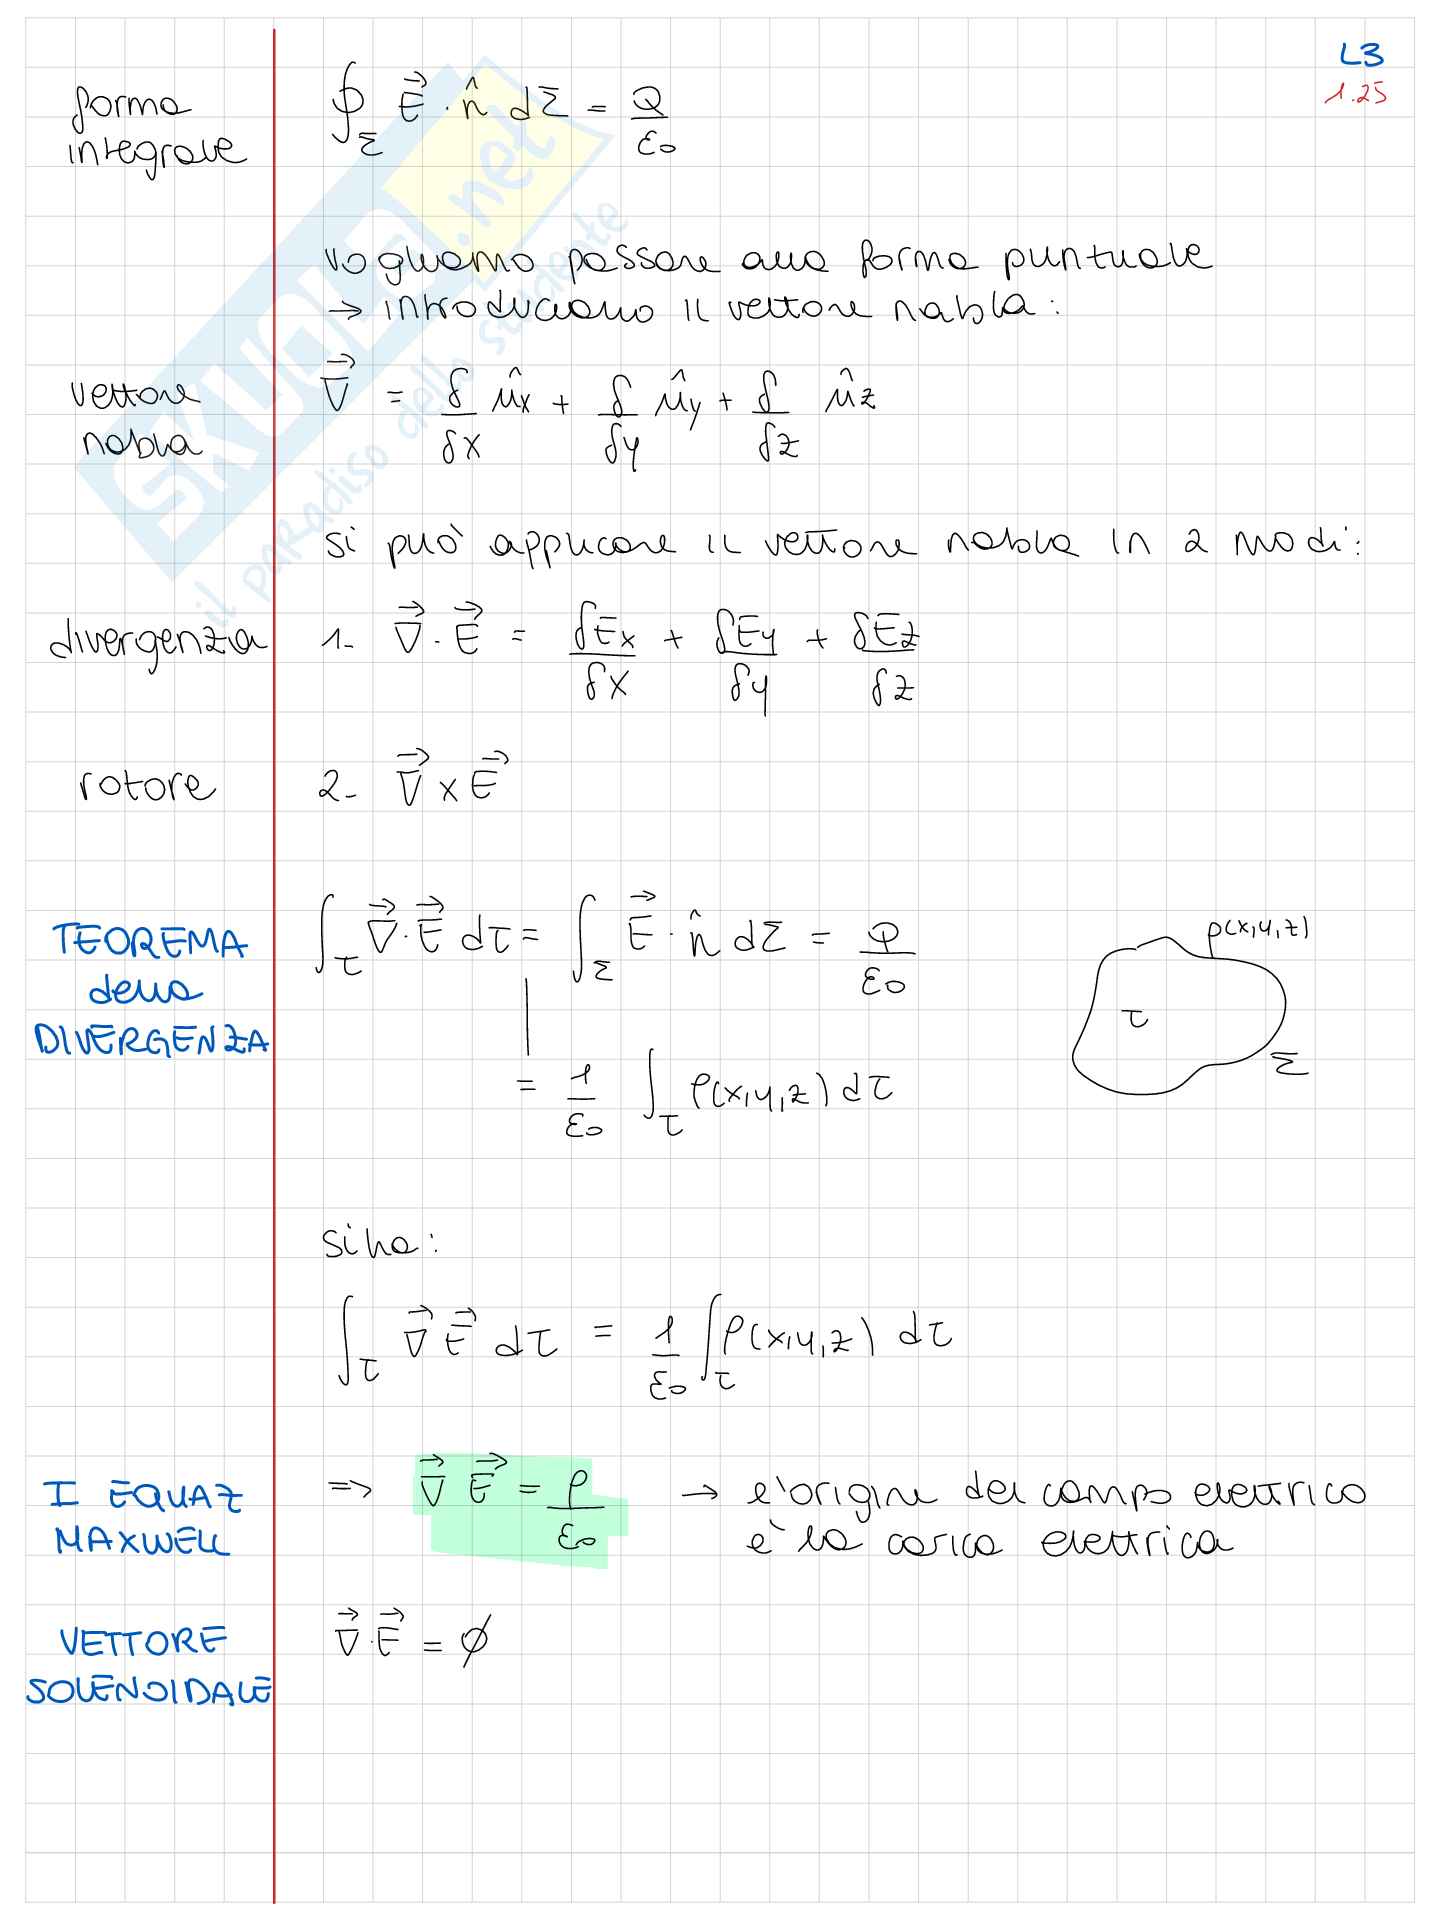 L3
1.25
forma
integrale
∮_Σ E⃗ · n̂ dΣ = Q/ε₀
vogliamo passare alla forma puntuale
→ introduciamo il vettore nabla:
vettore
nabla
∇⃗ = δ/δx ûx + δ/δy ûy + δ/δz ûz
si può applicare il vettore nabla in 2 modi:
divergenza
1- ∇⃗ · E⃗ = δEx/δx + δEy/δy + δEz/δz
rotore
2- ∇⃗ x E⃗
TEOREMA
della
DIVERGENZA
∫_τ ∇⃗ · E⃗ dτ = ∫_Σ E⃗ · n̂ dΣ = Q/ε₀
= 1/ε₀ ∫_τ ρ(x,y,z) dτ
ρ(x,y,z)
τ
Σ
si ha:
∫_τ ∇⃗ E⃗ dτ = 1/ε₀ ∫_τ ρ(x,y,z) dτ
I EQUAZ
MAXWELL
=> ∇⃗ E⃗ = ρ/ε₀ → l'origine del campo elettrico
è la carica elettrica
VETTORE
SOLENOIDALE
∇⃗ · E⃗ = ∅
SKUOLA.net
il paradiso dello studente